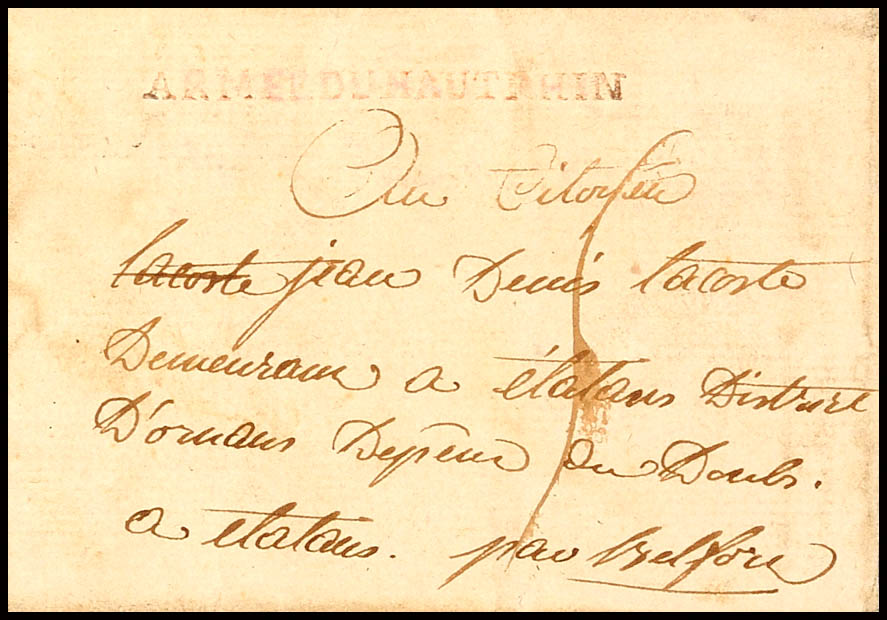 ARMEE DU HAUT RHIN
Au Citoyen
lacoste jean Denis lacoste
Demeurant a étalans District
D'ornans Depten du Doubs.
a etalans. par Belfort